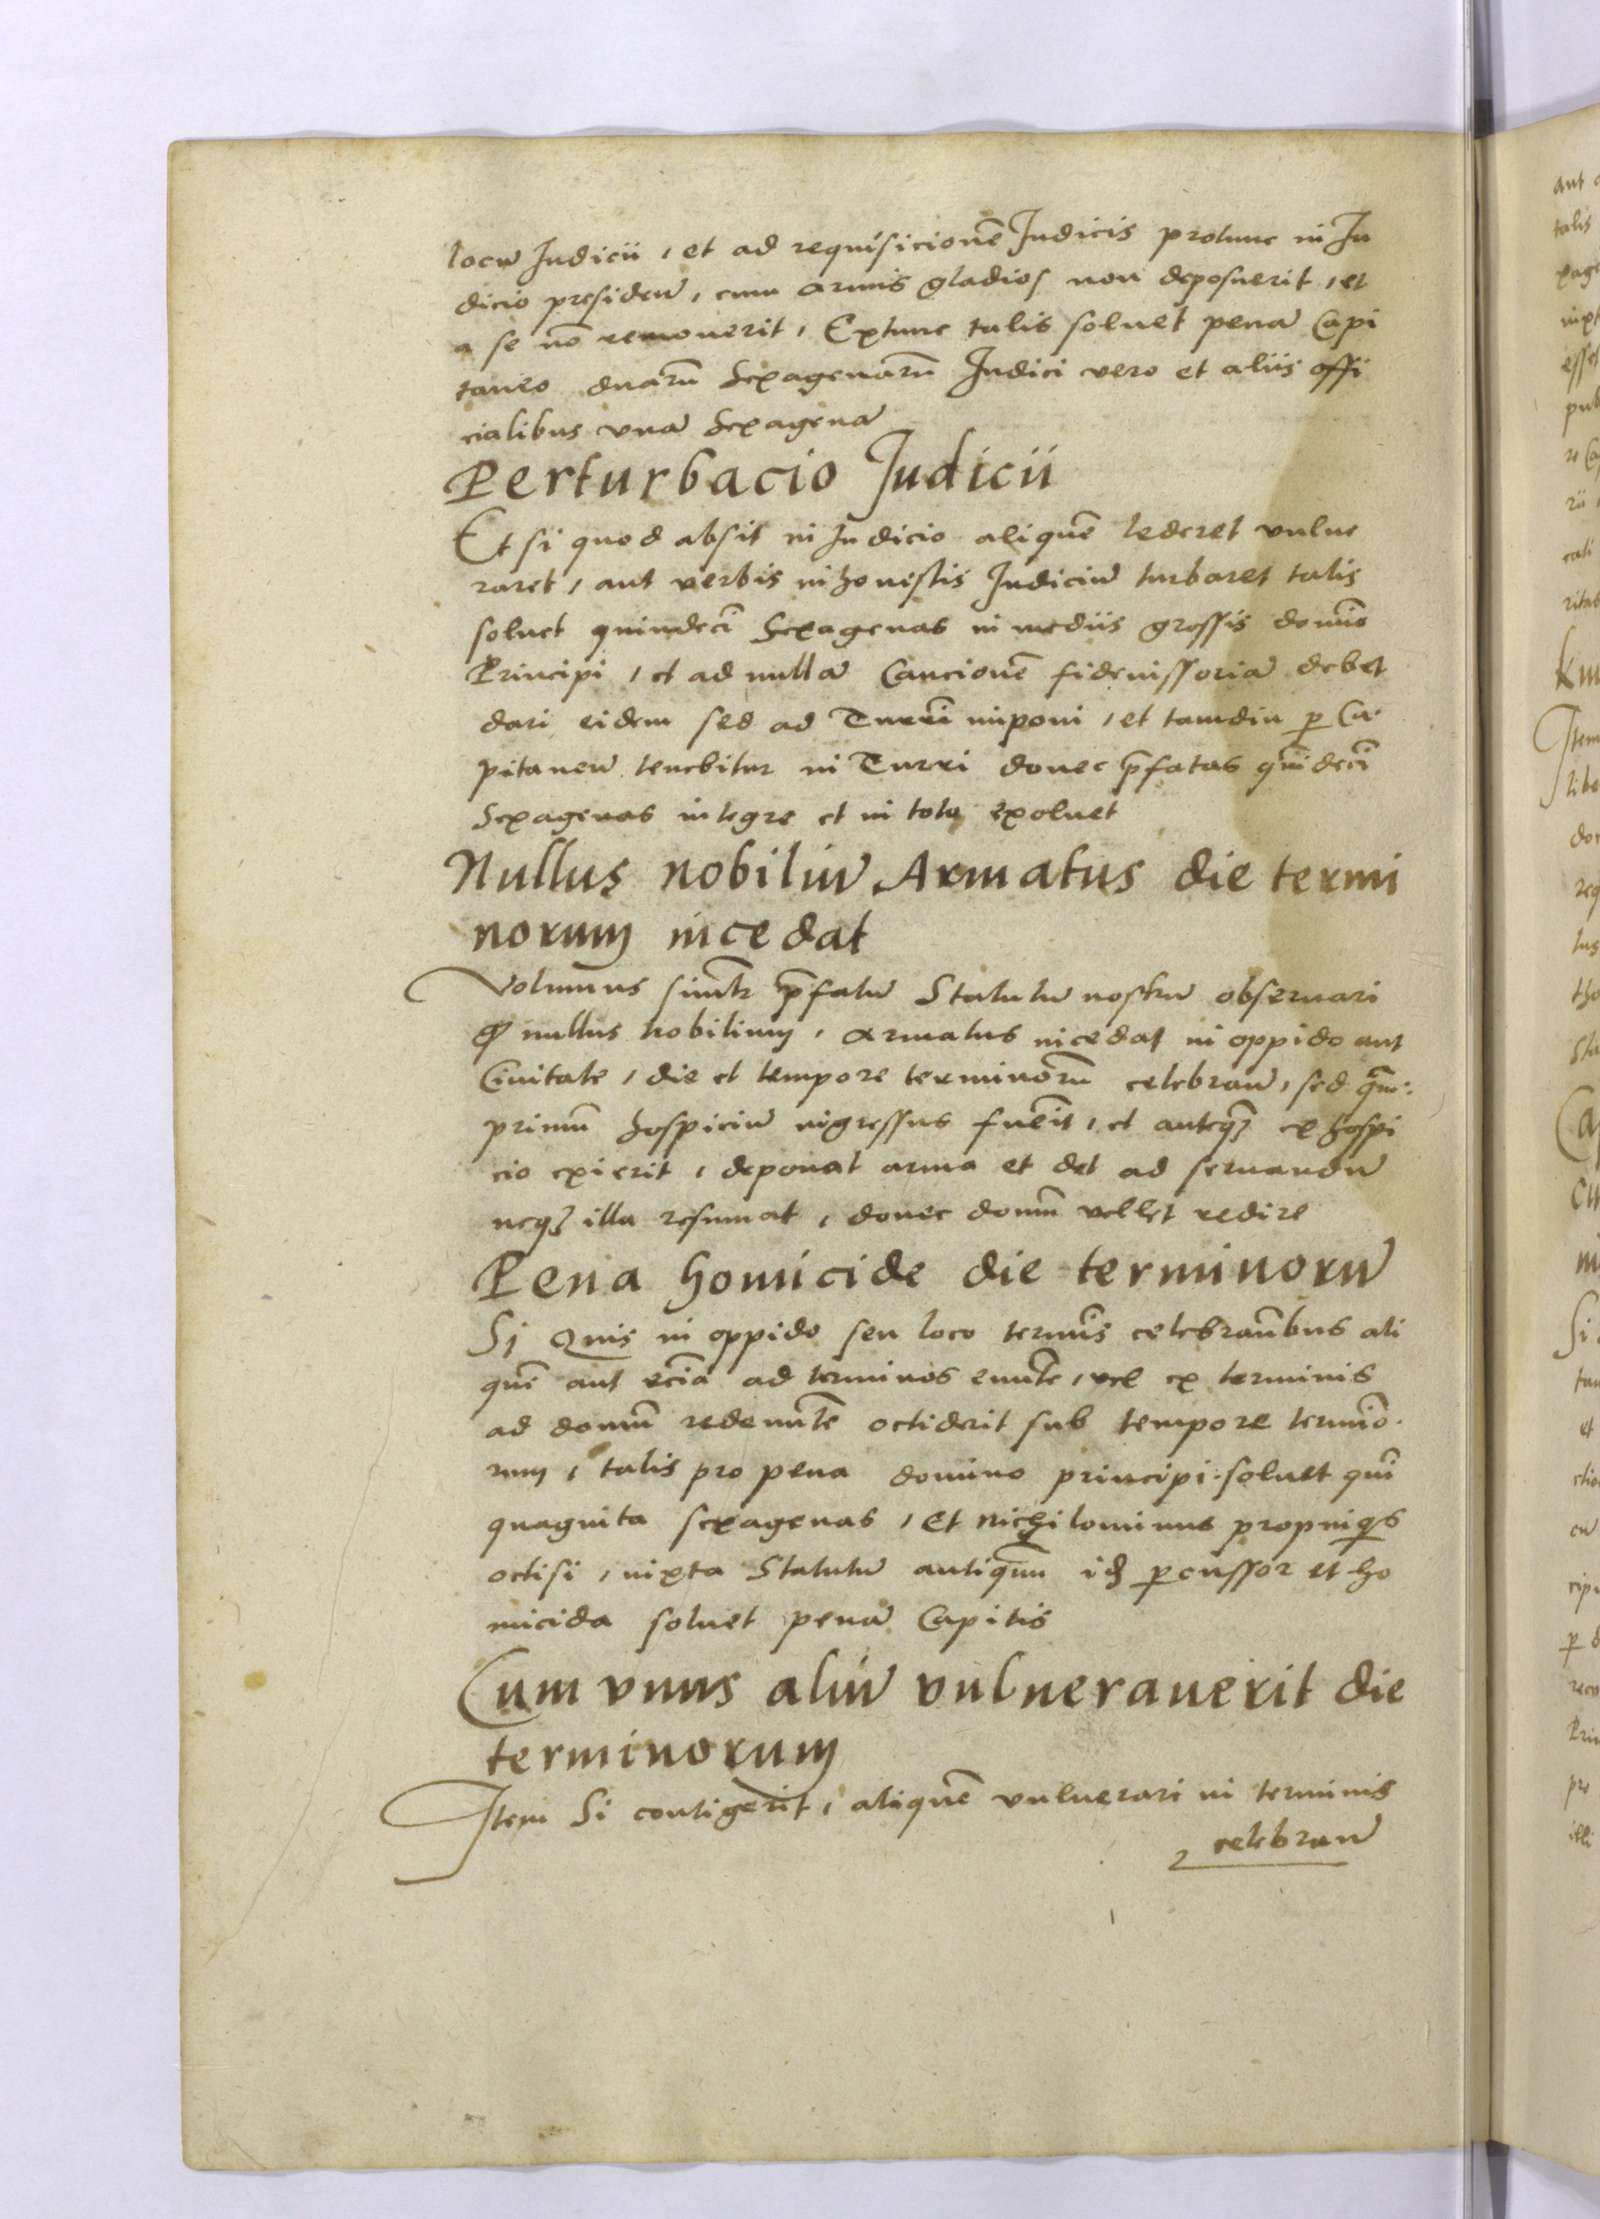 locū Judicii, et ad requisicionē Judicis protunc in Ju
dicio presiden̄, cum armis gladios non deposuerit, et
a se nō remouerit, Extunc talis soluet penā Capi
taneo duarū Sexagenarū Judici vero et aliis offi
cialibus vnā Sexagenā
Perturbacio Judicii
Et si quod absit in Judicio aliquē lederet vulne
raret, aut verbis inhonestis Judiciū turbaret talis
soluet quindecī Sexagenas in mediis grossis domīo
Principi, et ad nullā Caucionē fideiussoriā debet
dari eidem sed ad Turrī imponi, et tamdiu ꝑ Ca
pitaneū tenebitur in Turri donec p̄fatas quīdecī
Sexagenas integre et in toto exoluet
Nullus nobiliū Armatus die termi
norum incedat
Volumus simlr̄ p̄fatū Statutū nostrū obseruari
ꝙ nullus nobilium, armatus incedat in oppido aut
Ciuitate, die et tempore terminorū celebran̄, sed
primū hospiciū ingressus fuerīt, et anteqꝫ ex hospi
cio exierit, deponat arma et det ad seruandū
neqꝫ illa resumat, donec domū vellet redire
Pena homicide die terminorū
Si Quis in oppido seu loco termīs celebrantībus ali
quē aut ecīā ad terminos eunte͞, vel ex terminis
ad domū redeunte͞ occiderit sub tempore termīo
rum, talis pro pena domino principi soluet quī
quaginta sexagenas, et nichilominus propinqis
occisi, iuxta Statutū antiquū idꝫ ꝑcussor et ho
micida soluet penā Capitis
Cum vnus aliū vulnerauerit die
terminorum
Item Si contigerit, aliquē vulnerari in terminis
celebran̄
aut
talis
pub
Item
libe
Si
et
ꝑ
pre
illi